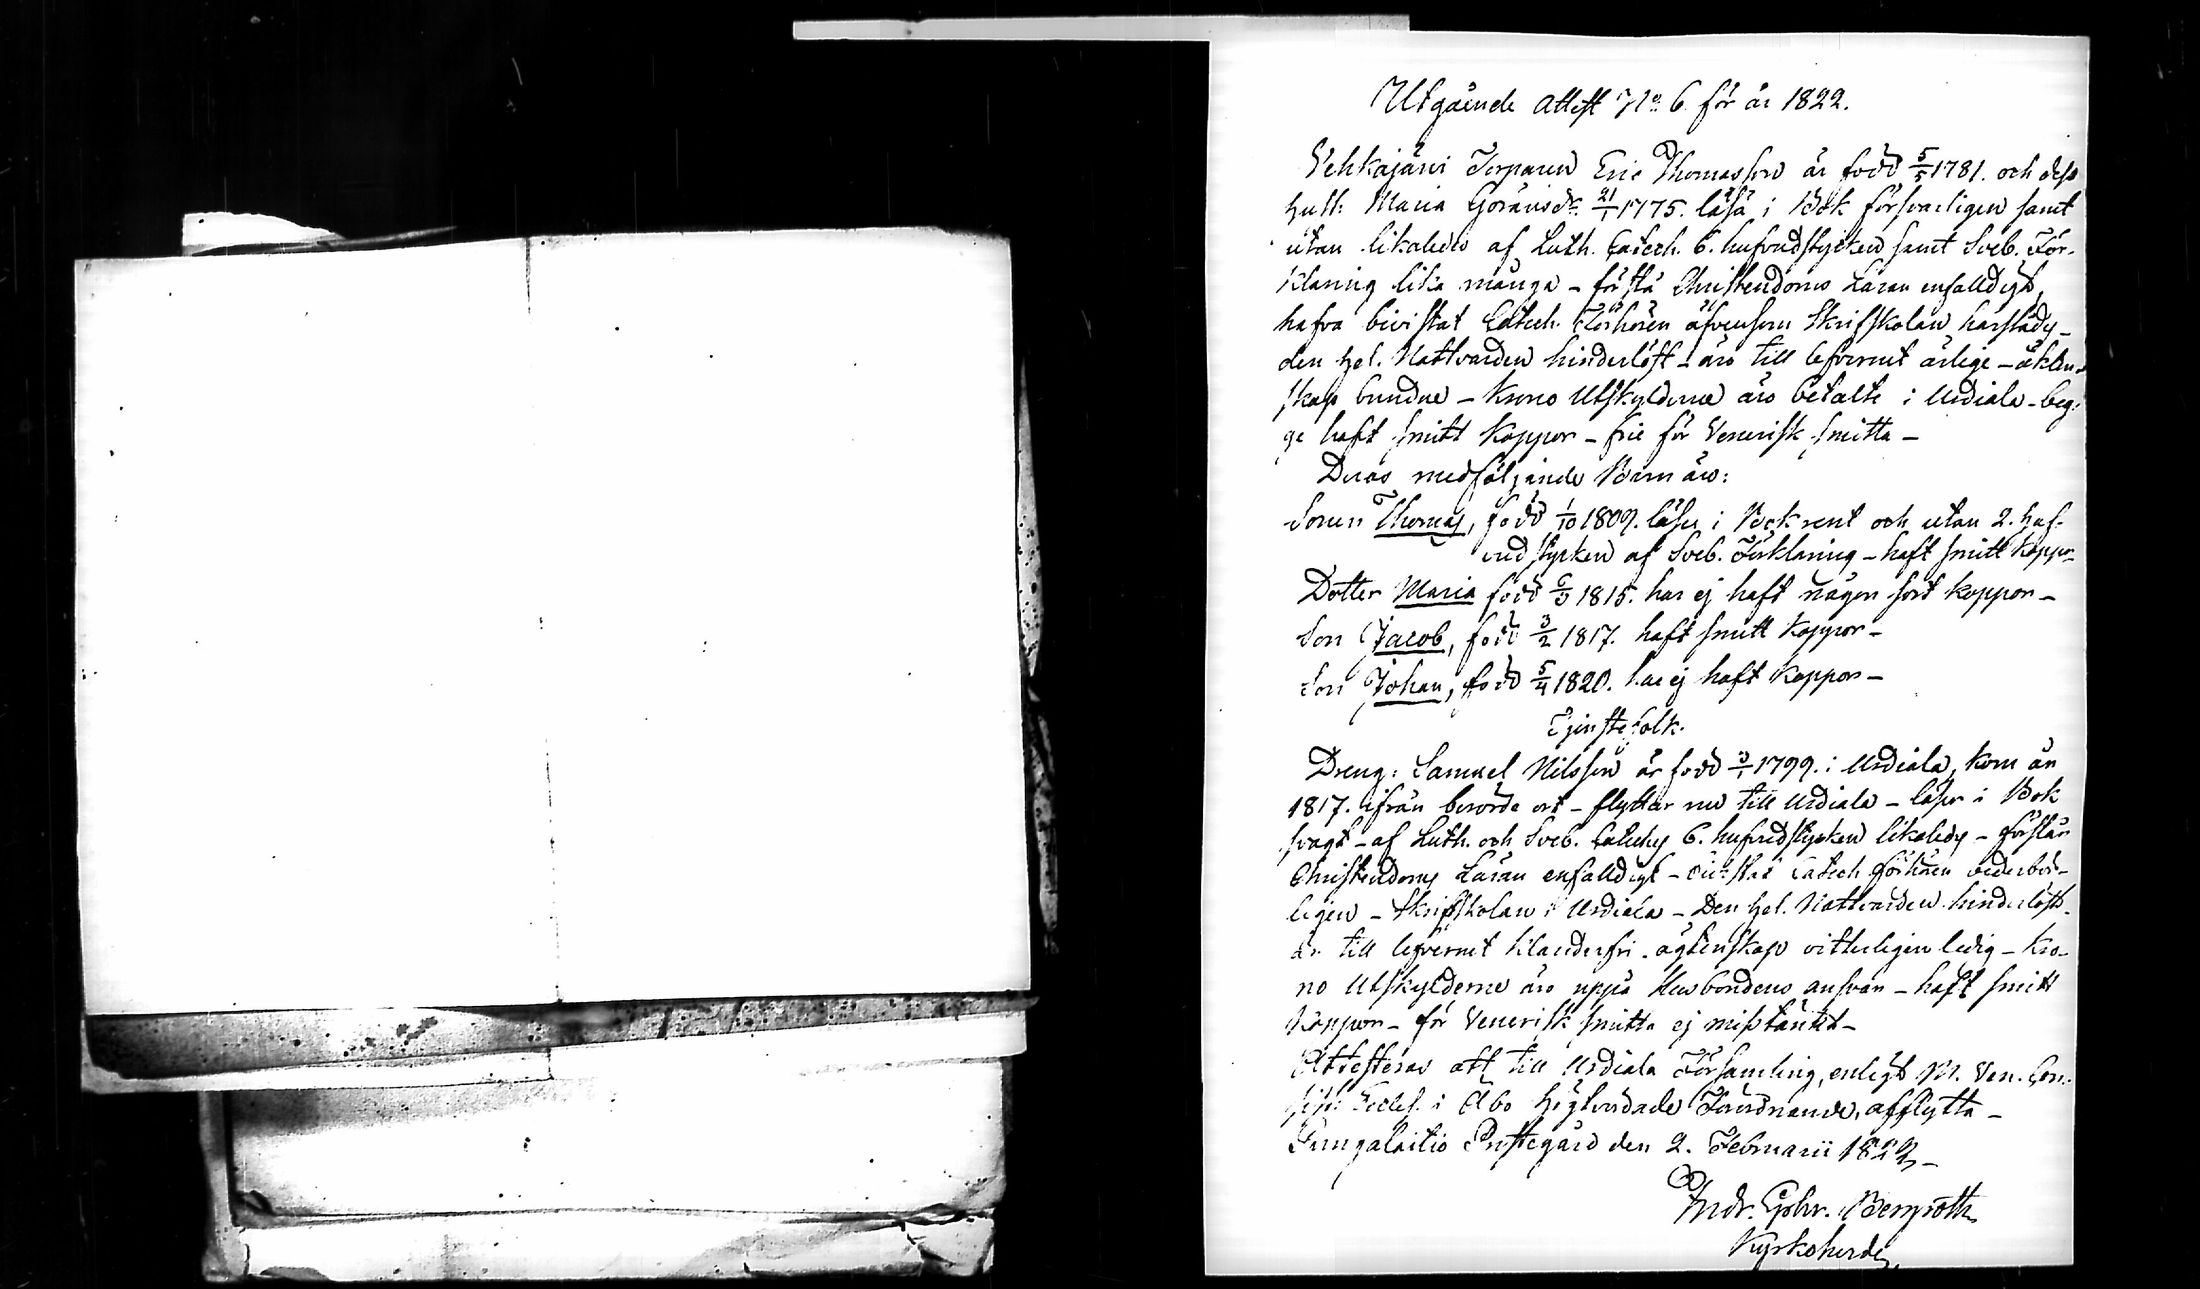 Utgående Attest No 6 för år 1822.
Vehkajärvi Torparen Eric Thomasson är född 5/5 1781. och dess
hust: Maria Göransdr. 21/1 1775. läsa i Bok försvarligen samt
utan likaledes af Luth. Catech. 6. hufvudstycken samt Sveb. För-
klaring lika många - förstå Christendoms Läran enfalldigt,
hafva bivistat Catech. Förhören äfvensom Skriftskolan härstädes -
den hel. Nattvarden hinderlöst - äro till lefvernet ärlige - äkten-
skap bundne - Krono Utskylderne äro betalte i Urdiala - beg-
ge haft smitt Koppor - frie för Venerisk smitta -
Deras medföljande Barn äro:
Sonen Thomas, född 1/10 1809. läser i Bok rent och utan 2. huf-
vudstycken af Sveb. Förklaring - haft smitt Koppor
Dotter Maria född 6/3 1815. har ej haft någon sort koppor -
Son Jacob, född 3/2 1817. haft smitt Koppor -
Son Johan, född 5/4 1820. har ej haft Koppor -
Tjenstefolk.
Dreng: Samuel Nilsson är född 3/1 1799. i Urdiala, kom år
1817. ifrån berörde ort - flyttar nu till Urdiala - läser i Bok
svagt - af Luth. och Sveb. Cateches 6. hufvudstycken likaledes - förstår
Christendoms Läran enfalldigt - Catech. förhören vederbör-
ligen - Skriftskolan i Urdiala - Den hel. Nattvarden hinderlöst -
är till lefvernet klanderfri - ägtenskap vitterligen ledig - Kro-
no Utskylderne äro uppå Husbondens ansvar - haft smitt
Koppor - för Venerisk smitta ej misstänkt -
Attesteras att till Urdiala Församling, enligt M. Ven. Con-
sist: Eccles. i Åbo Högtvördade Förordnande, afflytta -
Kungalaitio Prestegård den 2. Februarii 1822 -
Andr. Gabr. Bergroth
Kyrkoherde.